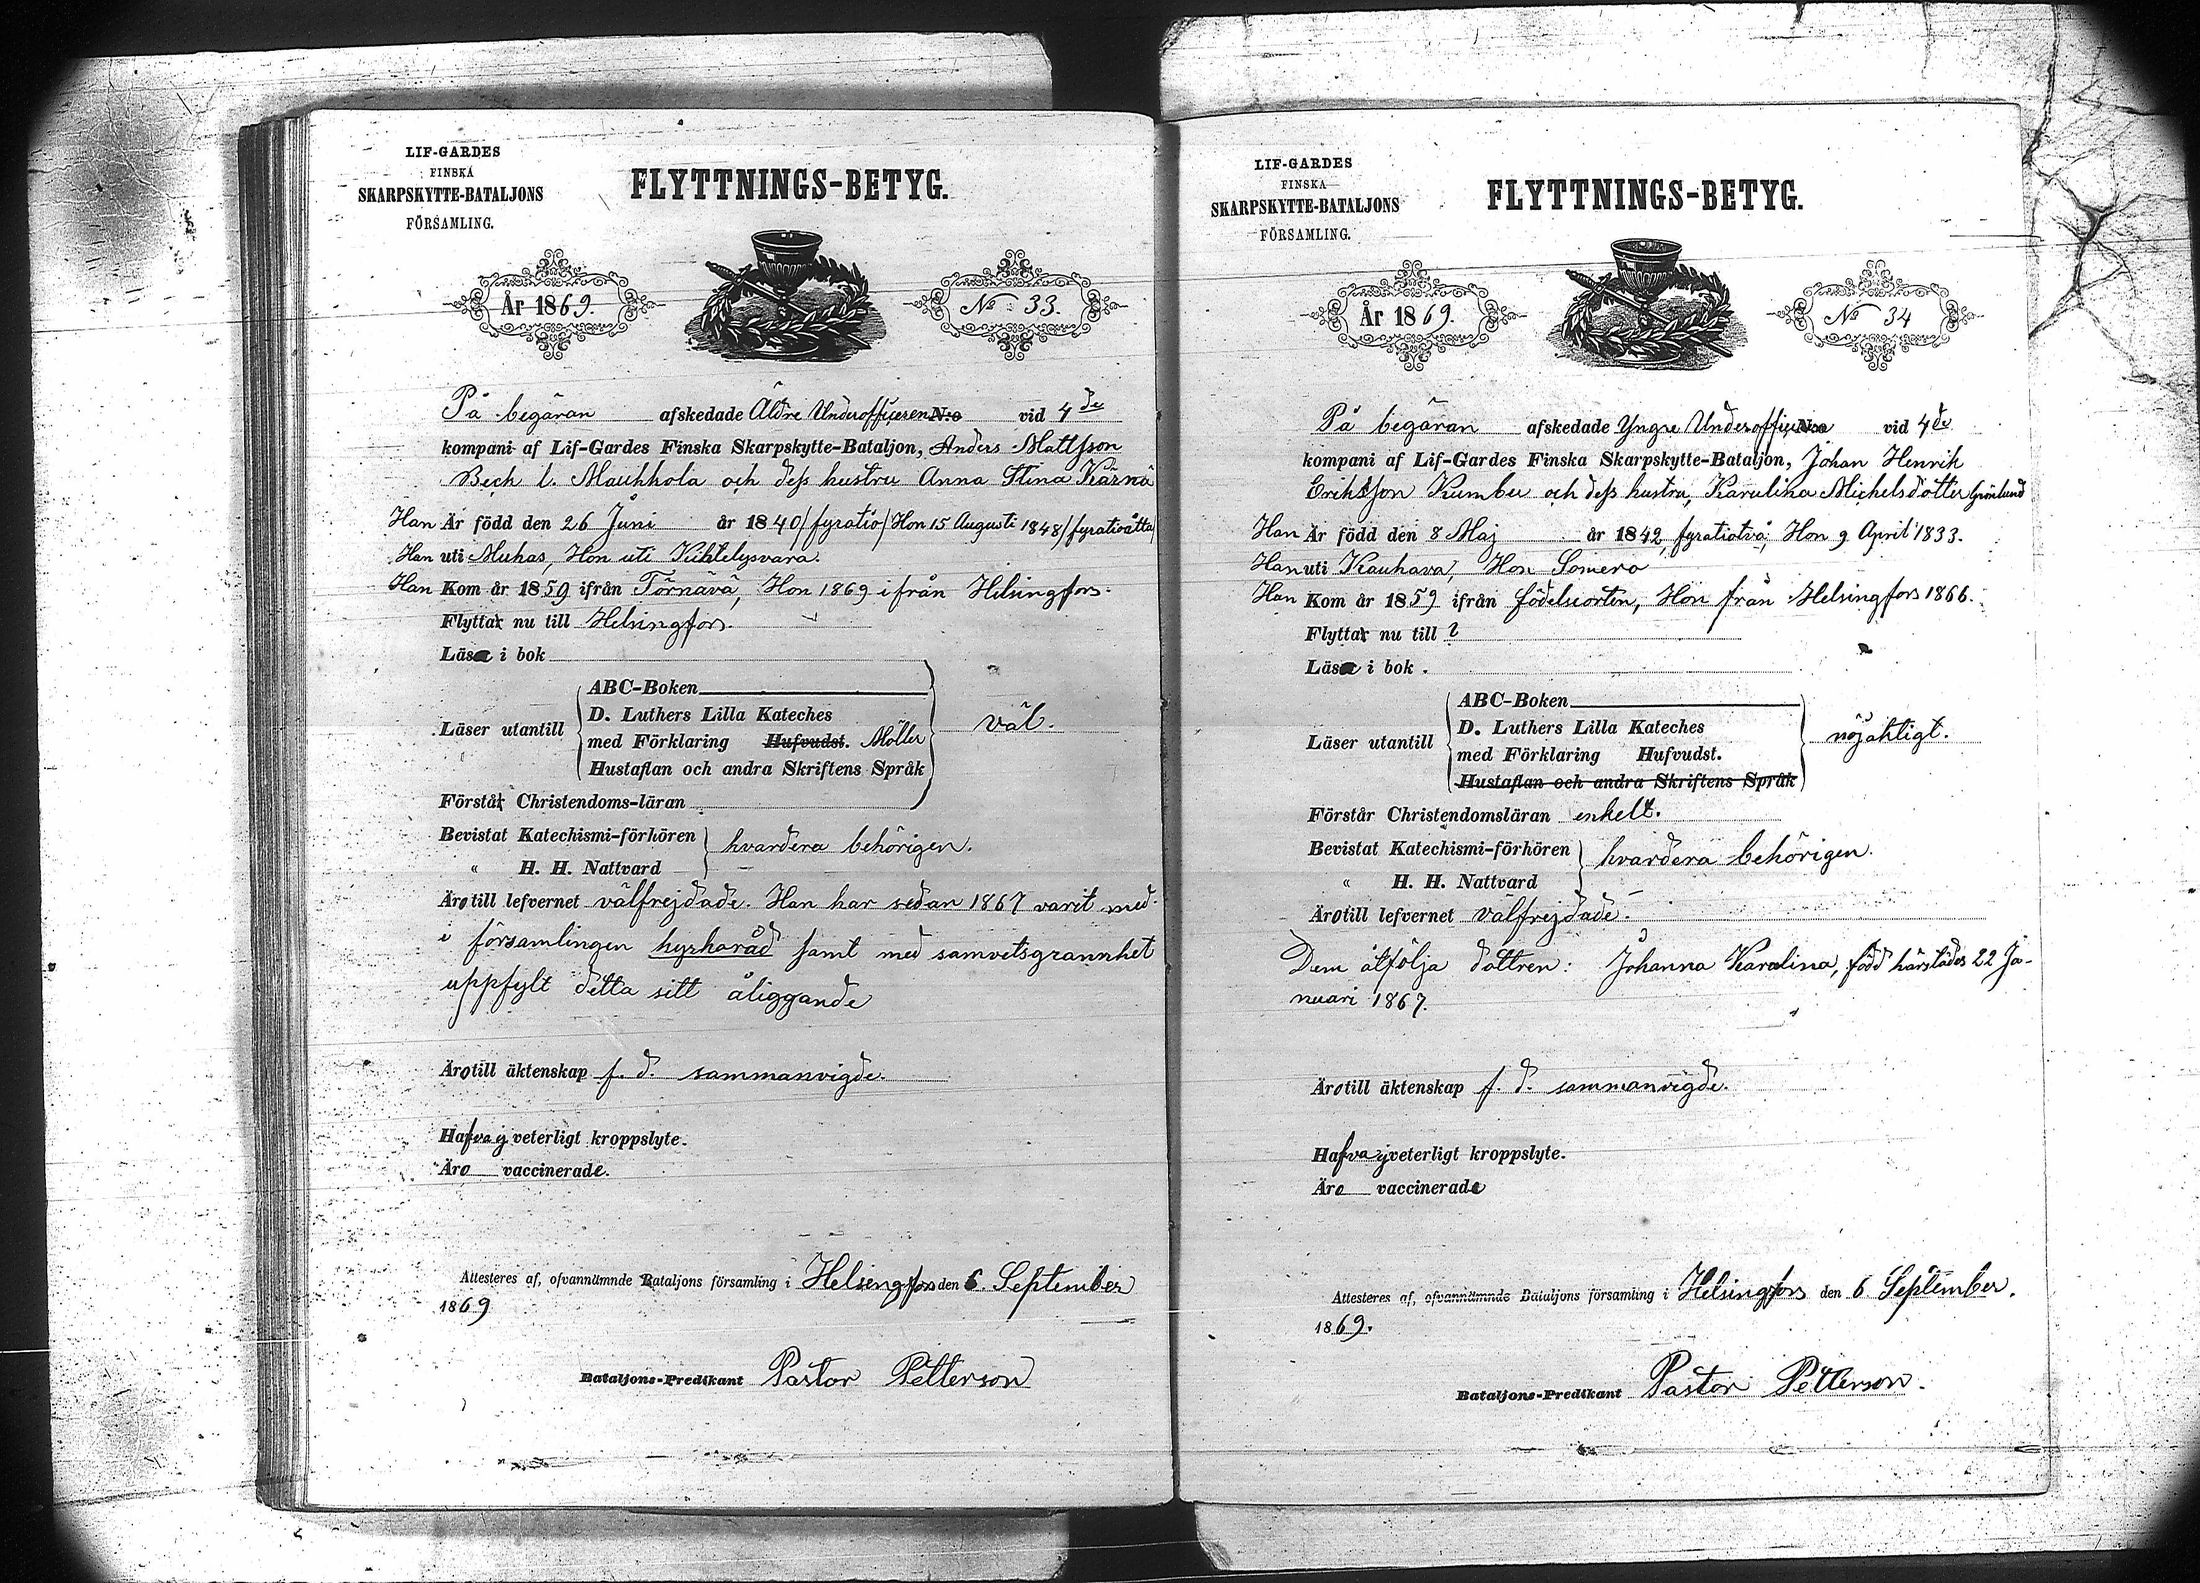 LIF-GARDES
FINSKA
SKARPSKYTTE-BATALJONS
FÖRSAMLING.
FLYTTNINGS-BETYG.
År 1869.
No 33.
På begäran afskedade Äldre Underofficeren N:o vid 4de
kompani af Lif-Gardes Finska Skarpskytte-Bataljon, Anders Mattsson
Bech l. Mauhhola och dess hustru Anna Stina Kärnä
Han Är född den 26 Juni år 1840/fyratio/Hon 15 Augusti 1848/fyratioåtta/
Han uti Muhas, Hon uti Kihtelysvara.
Han Kom år 1859 ifrån Törnävä, Hon 1869 ifrån Helsingfors.
Flytta nu till Helsingfors.
Läsa i bok
ABC-Boken
D. Luthers Lilla Kateches
Läser utantill
med Förklaring Hufvudst. Möller
väl.
Hustaflan och andra Skriftens Språk
Förstå Christendoms-läran
Bevistat Katechismi-förhören
" H. H. Nattvard
hvardera behörigen.
Äro till lefvernet välfrejdade. Han har sedan 1867 varit med
i församlingen kyrkoråd samt med samvetsgrannhet
uppfylt detta sitt åliggande
Äro till äktenskap f. d. sammanvigde.
Hafva ej veterligt kroppslyte.
Äro vaccinerade.
Attesteres af, ofvannämnde Bataljons församling i Helsingfors den 6. September
1869
Bataljons-Predikant Pastor Petterson
LIF-GARDES
FINSKA
SKARPSKYTTE-BATALJONS
FÖRSAMLING.
FLYTTNINGS-BETYG.
År 1869.
No 34
På begäran afskedade Yngre Underofficeren N:o vid 4de
kompani af Lif-Gardes Finska Skarpskytte-Bataljon, Johan Henrik
Eriksson Kumbu och dess hustru, Karolina Michelsdotter Grönlund
Han Är född den 8 Maj år 1842, fyratiotvå; Hon 9 April 1833.
Han uti Kauhava, Hon Somero
Han Kom år 1859 ifrån födelseorten, Hon från Helsingfors 1866.
Flytta nu till ?
Läsa i bok
ABC-Boken
D. Luthers Lilla Kateches
Läser utantill
med Förklaring Hufvudst.
nöjaktigt.
Hustaflan och andra Skriftens Språk
Förstår Christendomsläran enkelt.
Bevistat Katechismi-förhören
" H. H. Nattvard
hvardera behörigen.
Äro till lefvernet välfrejdade.
Dem åtfölja dottren: Johanna Karolina, född härstädes 22 Ja-
nuari 1867.
Äro till äktenskap f. d. sammanvigde.
Hafva ej veterligt kroppslyte.
Äro vaccinerade
Attesteres af, ofvannämnde Bataljons församling i Helsingfors den 6 September.
1869.
Bataljons-Predikant Pastor Petterson.